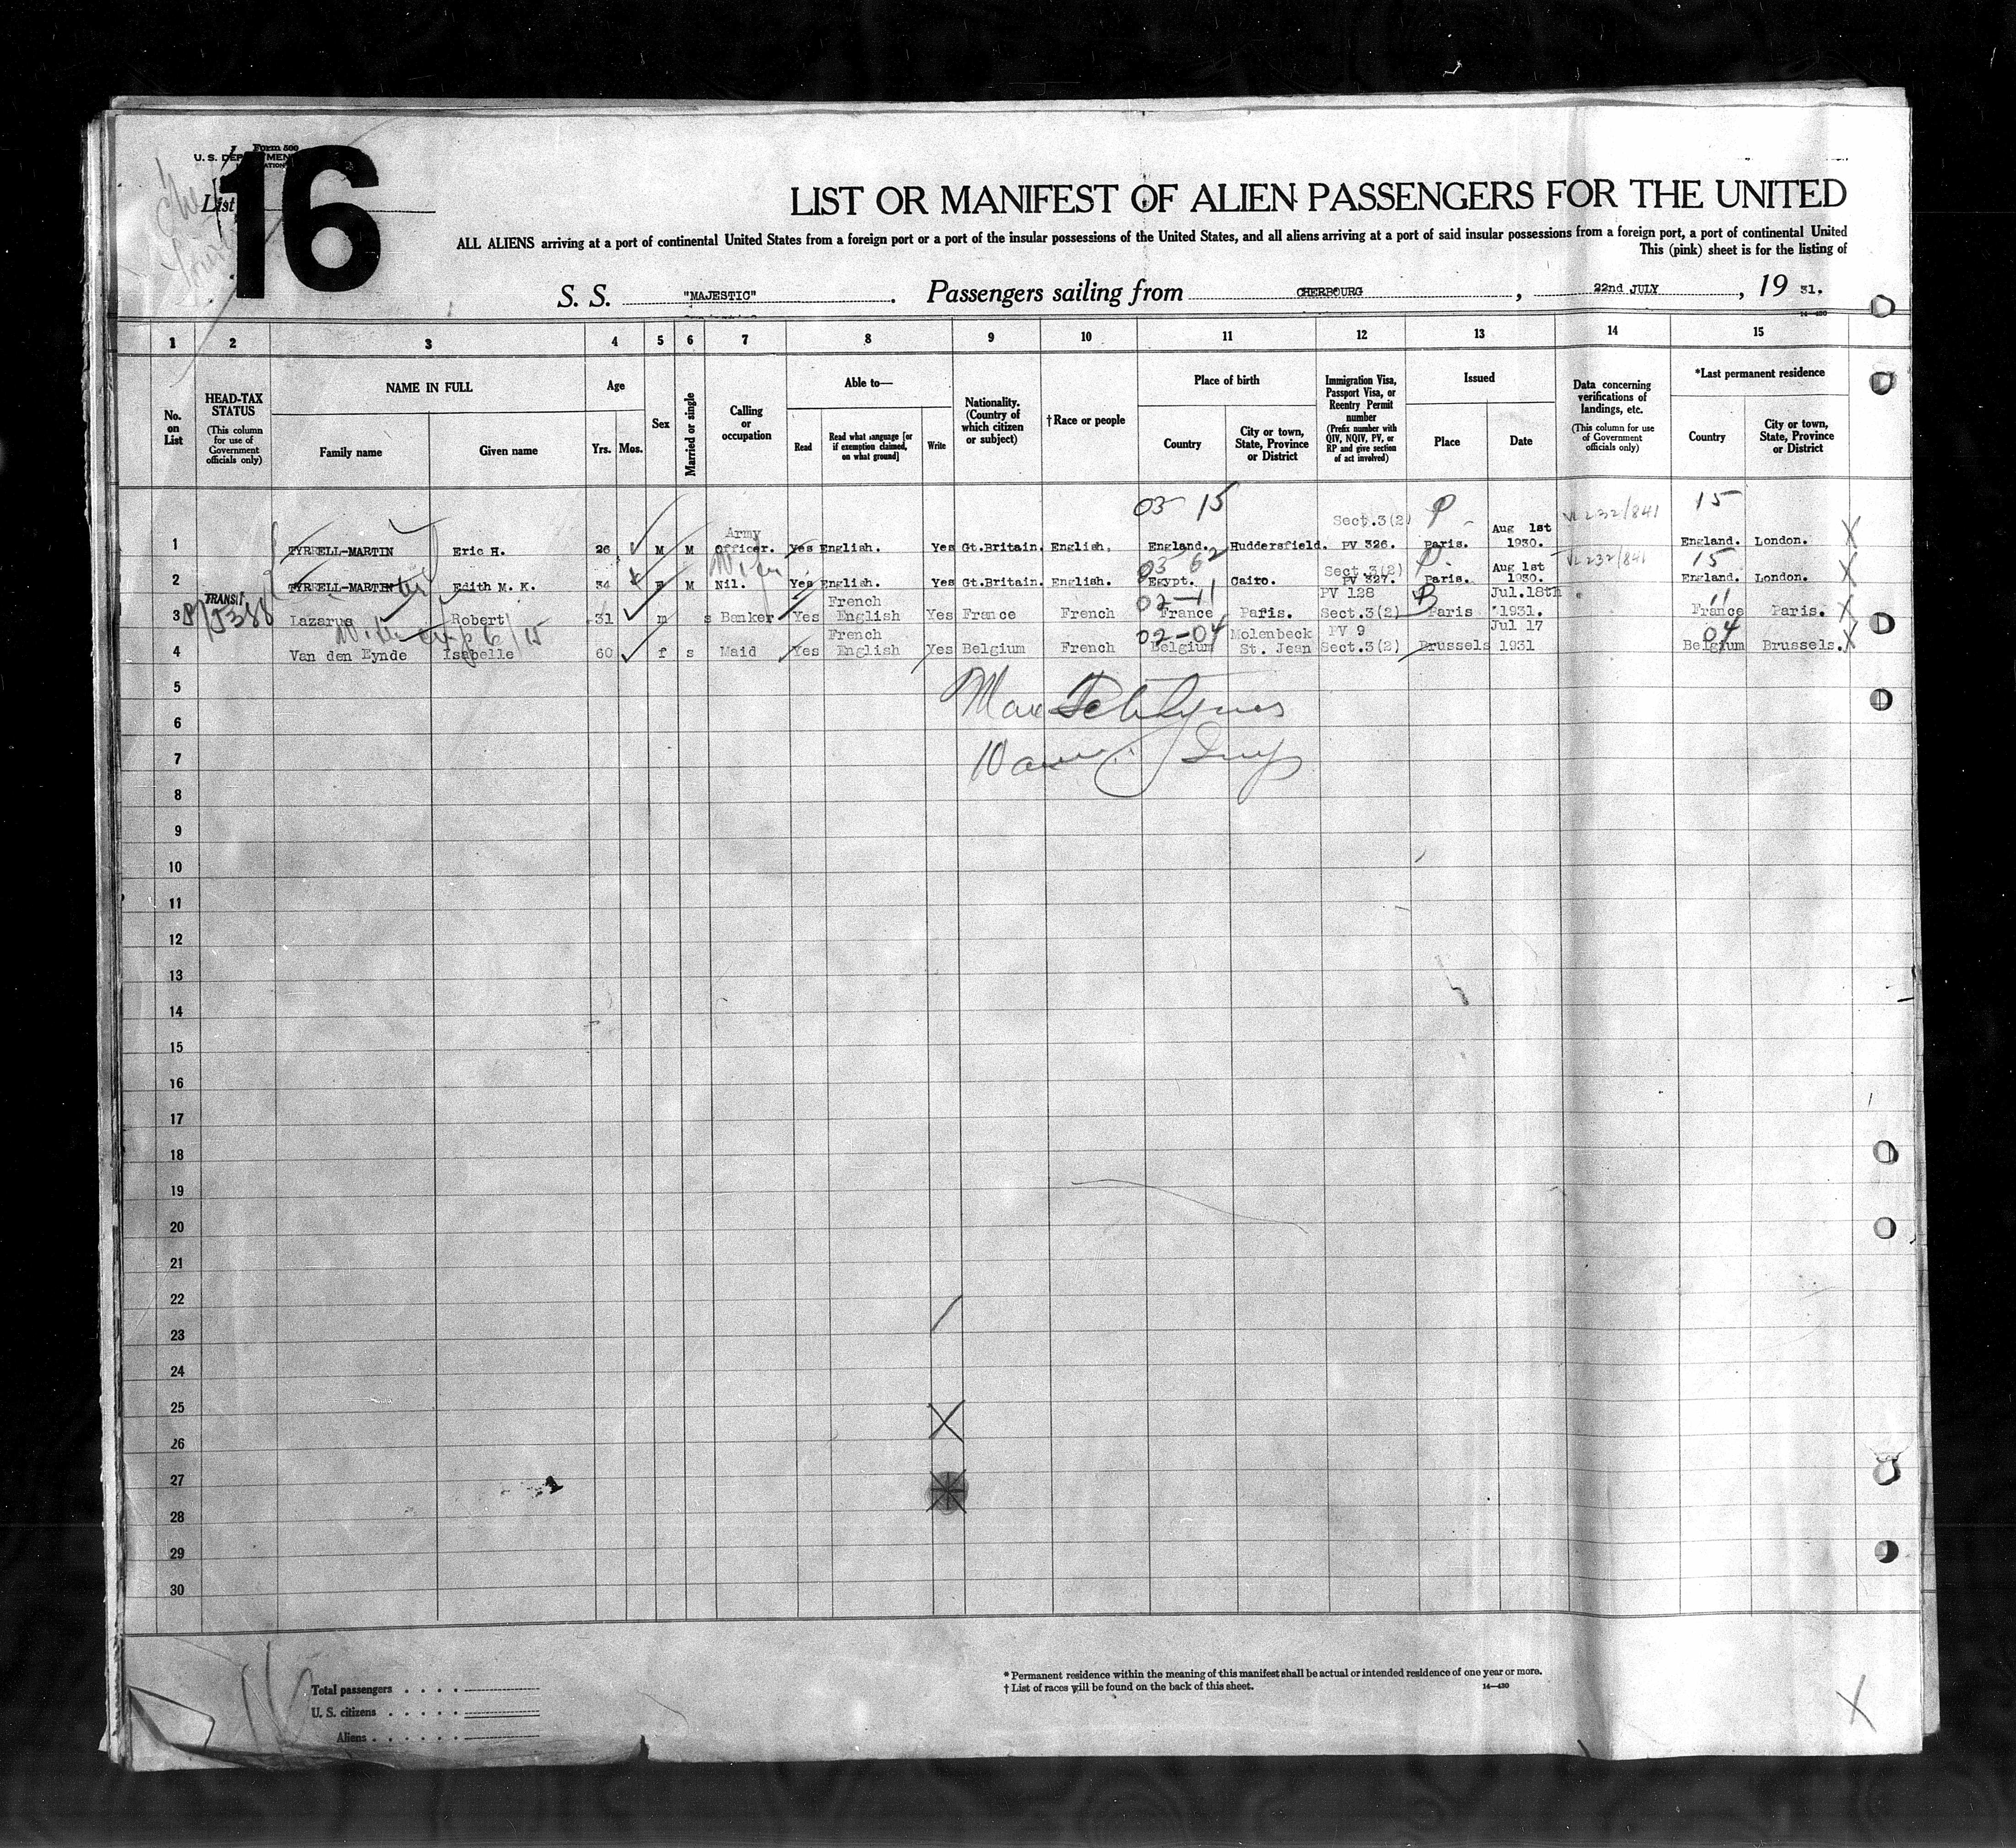 Form 500
U. S. DEP
List 16
LIST OR MANIFEST OF ALIEN PASSENGERS FOR THE UNITED
ALL ALIENS arriving at a port of continental United States from a foreign port or a port of the insular possessions of the United States, and all aliens arriving at a port of said insular possessions from a foreign port, a port of continental United
This (pink) sheet is for the listing of
S. S. "MAJESTIC". Passengers sailing from CHERBOURG, 22nd JULY, 19 31.
14—430
1 2 3 4 5 6 7 8 9 10 11 12 13 14 15
No. on List
HEAD-TAX STATUS (This column for use of Government officials only)
NAME IN FULL Family name Given name
Age Yrs. Mos.
Sex
Married or single
Calling or occupation
Able to— Read Read what language [or if exemption claimed, on what ground] Write
Nationality. (Country of which citizen or subject)
†Race or people
Place of birth Country City or town, State, Province or District
Immigration Visa, Passport Visa, or Reentry Permit number (Prefix number with QIV, NQIV, PV, or RP and give section of act involved)
Issued Place Date
Data concerning verifications of landings, etc. (This column for use of Government officials only)
*Last permanent residence Country City or town, State, Province or District
03 15 P 15
Sect.3(2) VL 232/841
Army Aug 1st
1 TYRRELL-MARTIN Eric H. 26 M M Officer. Yes English. Yes Gt.Britain. English. England. Huddersfield. PV 326. Paris. 1930. England. London. X
03 62 Sect.3(2) P Aug 1st VL 232/841 15
2 TYRRELL-MARTIN Edith M. K. 34 F M Nil. Yes English. Yes Gt.Britain. English. Egypt. Cairo. PV 327. Paris. 1930. England. London. X
TRANSIT French 02-11 PV 128 Jul.18th 11
3 Lazarus Robert 31 m s Banker Yes English Yes France French France Paris. Sect.3(2) Paris 1931. France Paris. X
French 02-04 Molenbeck PV 9 Jul 17 04
4 Van den Eynde Isabelle 60 f s Maid Yes English Yes Belgium French Belgium St. Jean Sect.3(2) Brussels 1931 Belgium Brussels. X
5
6
7
8
9
10
11
12
13
14
15
16
17
18
19
20
21
22
23
24
25
26
27
28
29
30
Total passengers
U. S. citizens
Aliens
* Permanent residence within the meaning of this manifest shall be actual or intended residence of one year or more.
† List of races will be found on the back of this sheet. 14—430
X